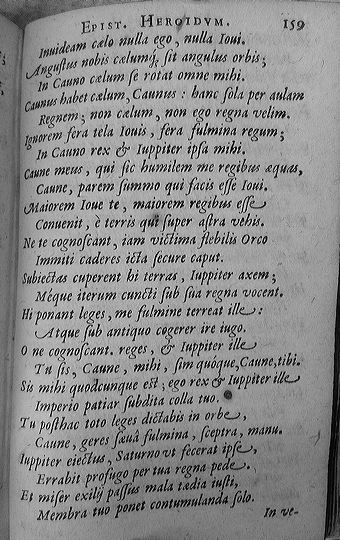 EPIST. HEROIDVM. 159
Inuideam cælo nulla ego, nulla Ioui.
Angustus nobis cælumq; sit angulus orbis;
In Cauno cælum se rotat omne mihi.
Caunus habet cælum, Caunus: hanc sola per aulam
Regnem; non cælum, non ego regna velim.
Ignorem fera tela Iouis, fera fulmina regum;
In Cauno rex & Iuppiter ipsa mihi.
Caune meus, qui sic humilem me regibus æquas,
Caune, parem summo qui facis esse Ioui.
Maiorem Ioue te, maiorem regibus esse
Conuenit, è terris qui super astra vehis.
Ne te cognoscant, iam victima flebilis Orco
Immiti caderes icta secure caput.
Subiectas cuperent hi terras, Iuppiter axem;
Méque iterum cuncti sub sua regna vocent.
Hi ponant leges, me fulmine terreat ille:
Atque sub antiquo cogerer ire iugo.
O ne cognoscant. reges, & Iuppiter ille
Tu sis, Caune, mihi, sim quóque, Caune, tibi.
Sis mihi quodcunque est; ego rex & Iuppiter ille
Imperio patiar subdita colla tuo.
Tu posthac toto leges dictabis in orbe,
Caune, geres sæuâ fulmina, sceptra, manu.
Iuppiter eiectus, Saturno vt fecerat ipse,
Errabit profugo per tua regna pede.
Et miser exilij passus mala tædia iusti,
Membra tuo ponet contumulanda solo.
In ve-